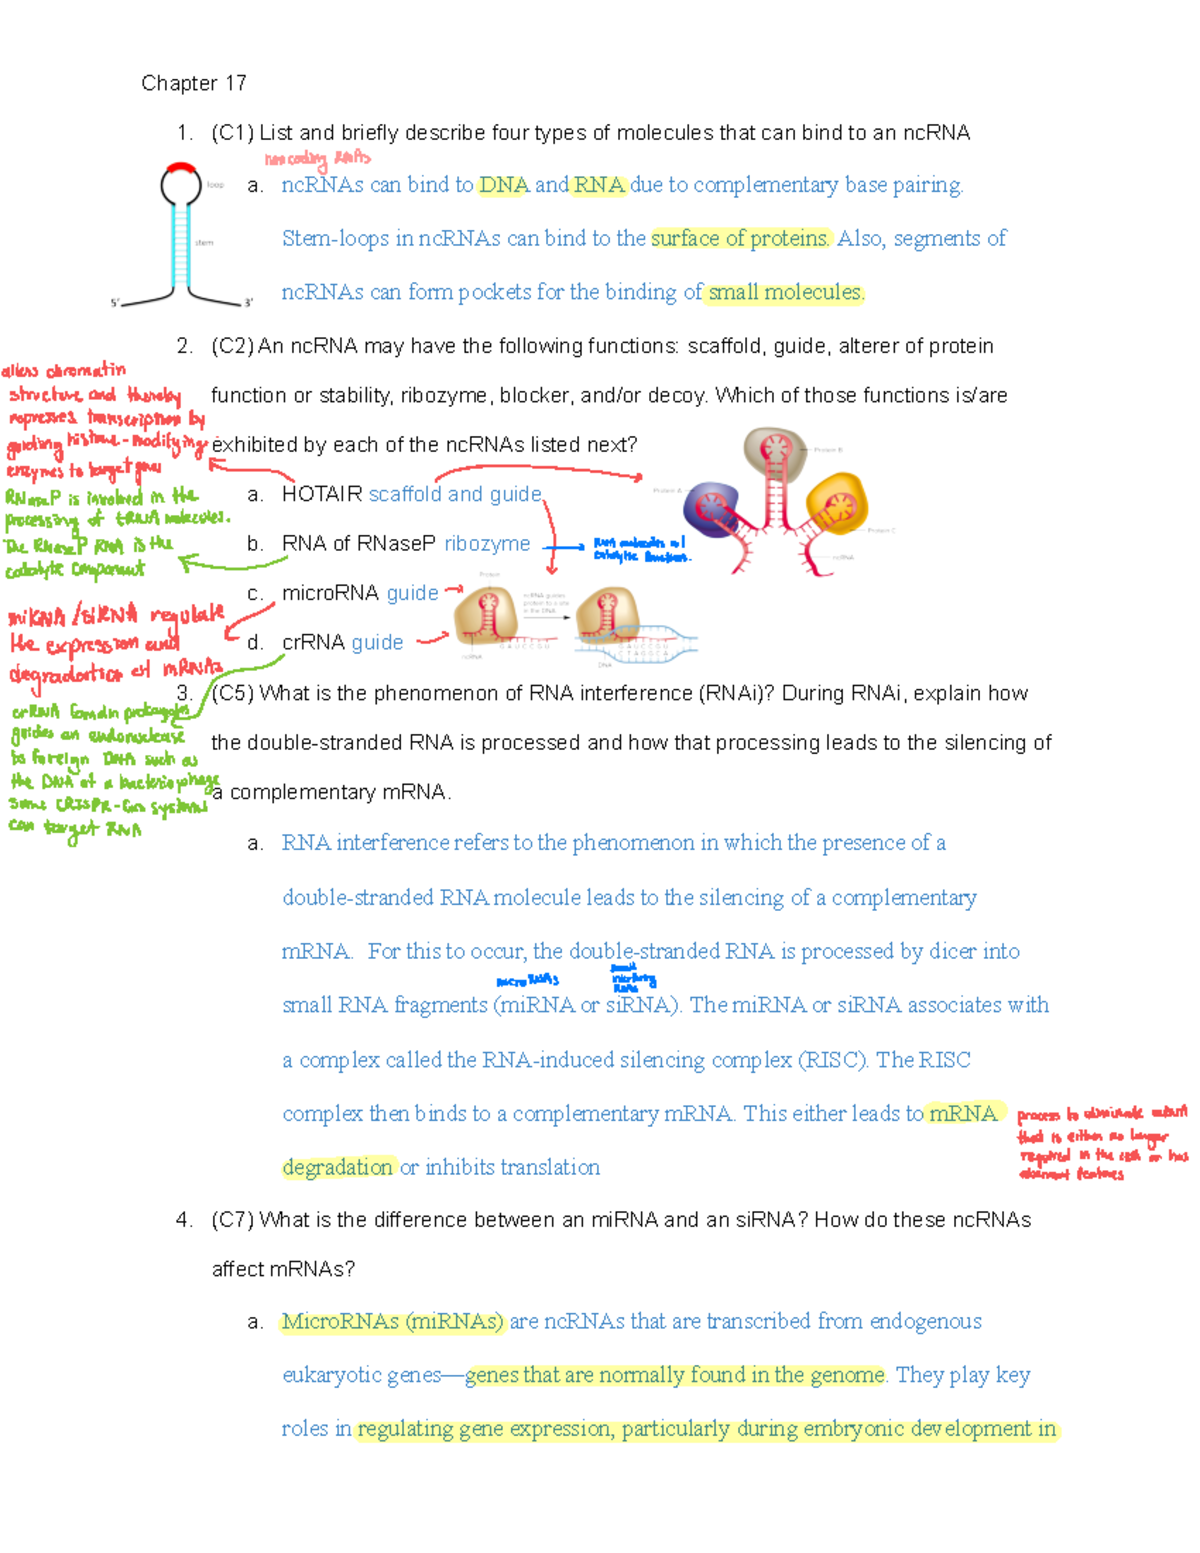 Chapter 17
1. (C1) List and briefly describe four types of molecules that can bind to an ncRNA
non coding RNAs
a. ncRNAs can bind to DNA and RNA due to complementary base pairing.
Stem-loops in ncRNAs can bind to the surface of proteins. Also, segments of
ncRNAs can form pockets for the binding of small molecules.
loop
stem
5'
3'
2. (C2) An ncRNA may have the following functions: scaffold, guide, alterer of protein
function or stability, ribozyme, blocker, and/or decoy. Which of those functions is/are
exhibited by each of the ncRNAs listed next?
a. HOTAIR scaffold and guide
b. RNA of RNaseP ribozyme
c. microRNA guide
d. crRNA guide
alters chromatin
structure and thereby
represses transcription by
guiding histone-modifying
enzymes to target genes
RNaseP is involved in the
processing of tRNA molecules.
The RNaseP RNA is the
catalytic component
miRNA/siRNA regulate
the expression and
degradation of mRNAs
crRNA found in prokaryotes
guides an endonuclease
to foreign DNA such as
the DNA of a bacteriophage
some CRISPR-Cas systems
can target RNA
RNA molecules w/
catalytic functions.
Protein B
Protein A
Protein C
ncRNA
Protein
ncRNA guides
protein to a site
in the DNA
GAUCCGU
ncRNA
GAUCCGU
CTAGGCA
DNA
3. (C5) What is the phenomenon of RNA interference (RNAi)? During RNAi, explain how
the double-stranded RNA is processed and how that processing leads to the silencing of
a complementary mRNA.
a. RNA interference refers to the phenomenon in which the presence of a
double-stranded RNA molecule leads to the silencing of a complementary
mRNA. For this to occur, the double-stranded RNA is processed by dicer into
micro RNAs
small interfering RNAs
small RNA fragments (miRNA or siRNA). The miRNA or siRNA associates with
a complex called the RNA-induced silencing complex (RISC). The RISC
complex then binds to a complementary mRNA. This either leads to mRNA
degradation or inhibits translation
process to eliminate
that is either no longer
required in the cell or has
aberrant features
4. (C7) What is the difference between an miRNA and an siRNA? How do these ncRNAs
affect mRNAs?
a. MicroRNAs (miRNAs) are ncRNAs that are transcribed from endogenous
eukaryotic genes—genes that are normally found in the genome. They play key
roles in regulating gene expression, particularly during embryonic development in